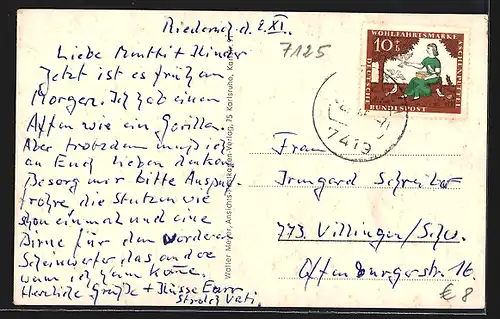 Riederich d. 2. XI.
7125
Liebe Mutti + Kinder
Jetzt ist es früh am
Morgen. Ich hab einen
Affen wie ein Gorilla.
Aber trotzdem muß ich
an Euch lieben denken
Besorg mir bitte Auspuff
rohre die Stutzen wie
schon einmal und eine
Birne für den Vorderen
Scheinwerfer das andere
wenn ich heim komme.
Herzliche Grüße + Küsse Euer
Strolch Vati.
Walter Meyer, Ansichtspostkarten-Verlag, 75 Karlsruhe,
10+5
WOHLFAHRTSMARKE
ASCHENPUTTEL
DEUTSCHE
BUNDESPOST
7419
Frau
Irmgard Schreiber
773 Villingen/Schw.
Offenburgerstr. 16.
€ 8